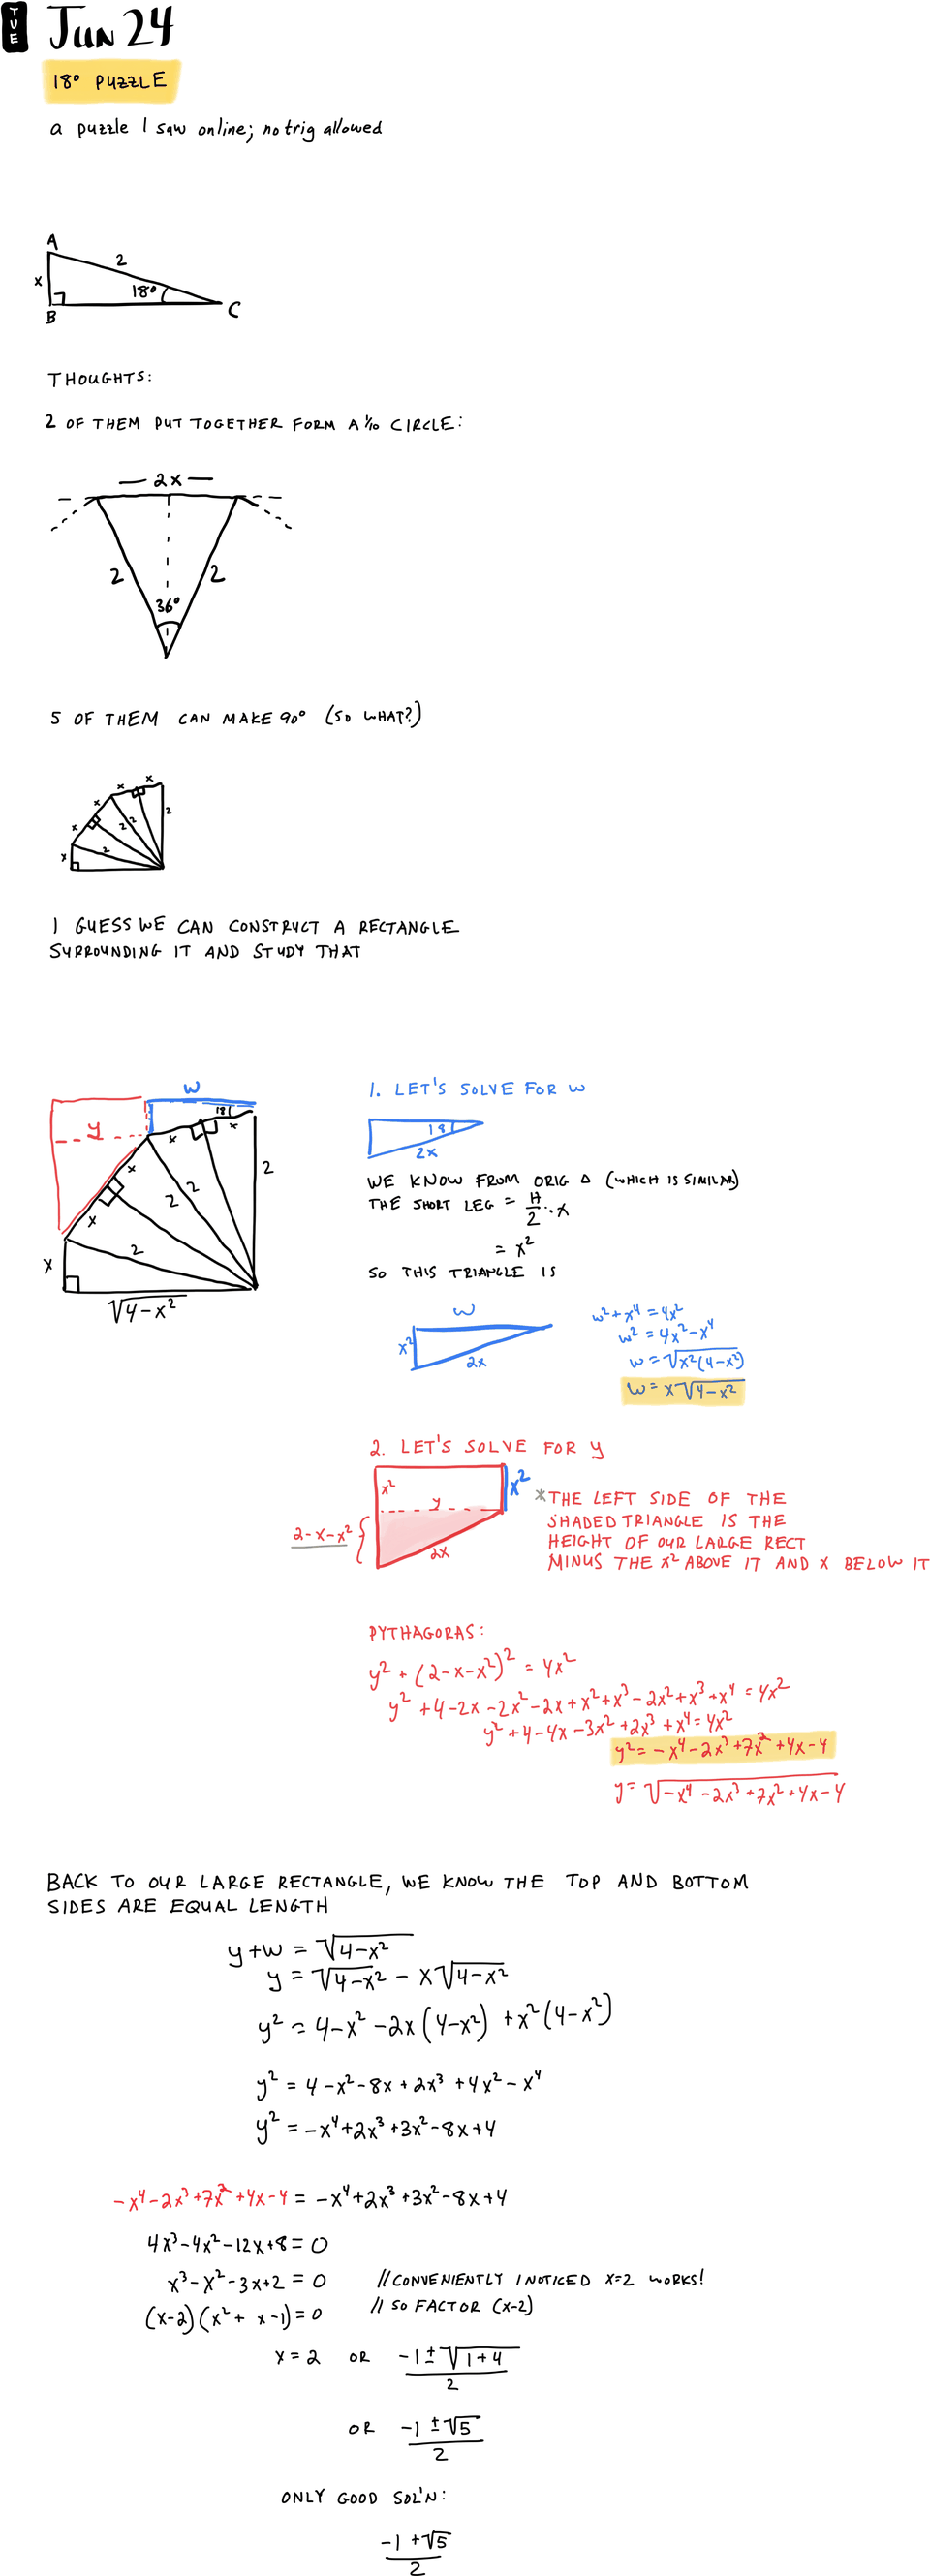 TUE
Jun 24
18° PUZZLE
a puzzle I saw online; no trig allowed
A
2
x
18°
B
C
THOUGHTS:
2 OF THEM PUT TOGETHER FORM A 1/10 CIRCLE:
2x
2
2
36°
5 OF THEM CAN MAKE 90° (SO WHAT?)
x
x
x
x
2
2
2
2
x
I GUESS WE CAN CONSTRUCT A RECTANGLE
SURROUNDING IT AND STUDY THAT
w
18
y
x
x
x
2
2
2
x
2
x
√4-x²
1. LET'S SOLVE FOR w
18
2x
WE KNOW FROM ORIG △ (WHICH IS SIMILAR)
THE SHORT LEG = H/2 · x
= x²
SO THIS TRIANGLE IS
w
x²
2x
w² + x⁴ = 4x²
w² = 4x² - x⁴
w = √x²(4-x²)
w = x√4-x²
2. LET'S SOLVE FOR y
x²
x²
y
2-x-x²
2x
* THE LEFT SIDE OF THE
SHADED TRIANGLE IS THE
HEIGHT OF OUR LARGE RECT
MINUS THE x² ABOVE IT AND x BELOW IT
PYTHAGORAS:
y² + (2-x-x²)² = 4x²
y² + 4 - 2x - 2x² - 2x + x² + x³ - 2x² + x³ + x⁴ = 4x²
y² + 4 - 4x - 3x² + 2x³ + x⁴ = 4x²
y² = -x⁴ - 2x³ + 7x² + 4x - 4
y = √-x⁴ - 2x³ + 7x² + 4x - 4
BACK TO OUR LARGE RECTANGLE, WE KNOW THE TOP AND BOTTOM
SIDES ARE EQUAL LENGTH
y + w = √4-x²
y = √4-x² - x√4-x²
y² = 4-x² - 2x(4-x²) + x²(4-x²)
y² = 4 - x² - 8x + 2x³ + 4x² - x⁴
y² = -x⁴ + 2x³ + 3x² - 8x + 4
-x⁴ - 2x³ + 7x² + 4x - 4 = -x⁴ + 2x³ + 3x² - 8x + 4
4x³ - 4x² - 12x + 8 = 0
x³ - x² - 3x + 2 = 0 // CONVENIENTLY I NOTICED x=2 WORKS!
(x-2)(x² + x - 1) = 0 // SO FACTOR (x-2)
x = 2 OR -1 ± √1+4 / 2
OR -1 ± √5 / 2
ONLY GOOD SOL'N:
-1 + √5 / 2